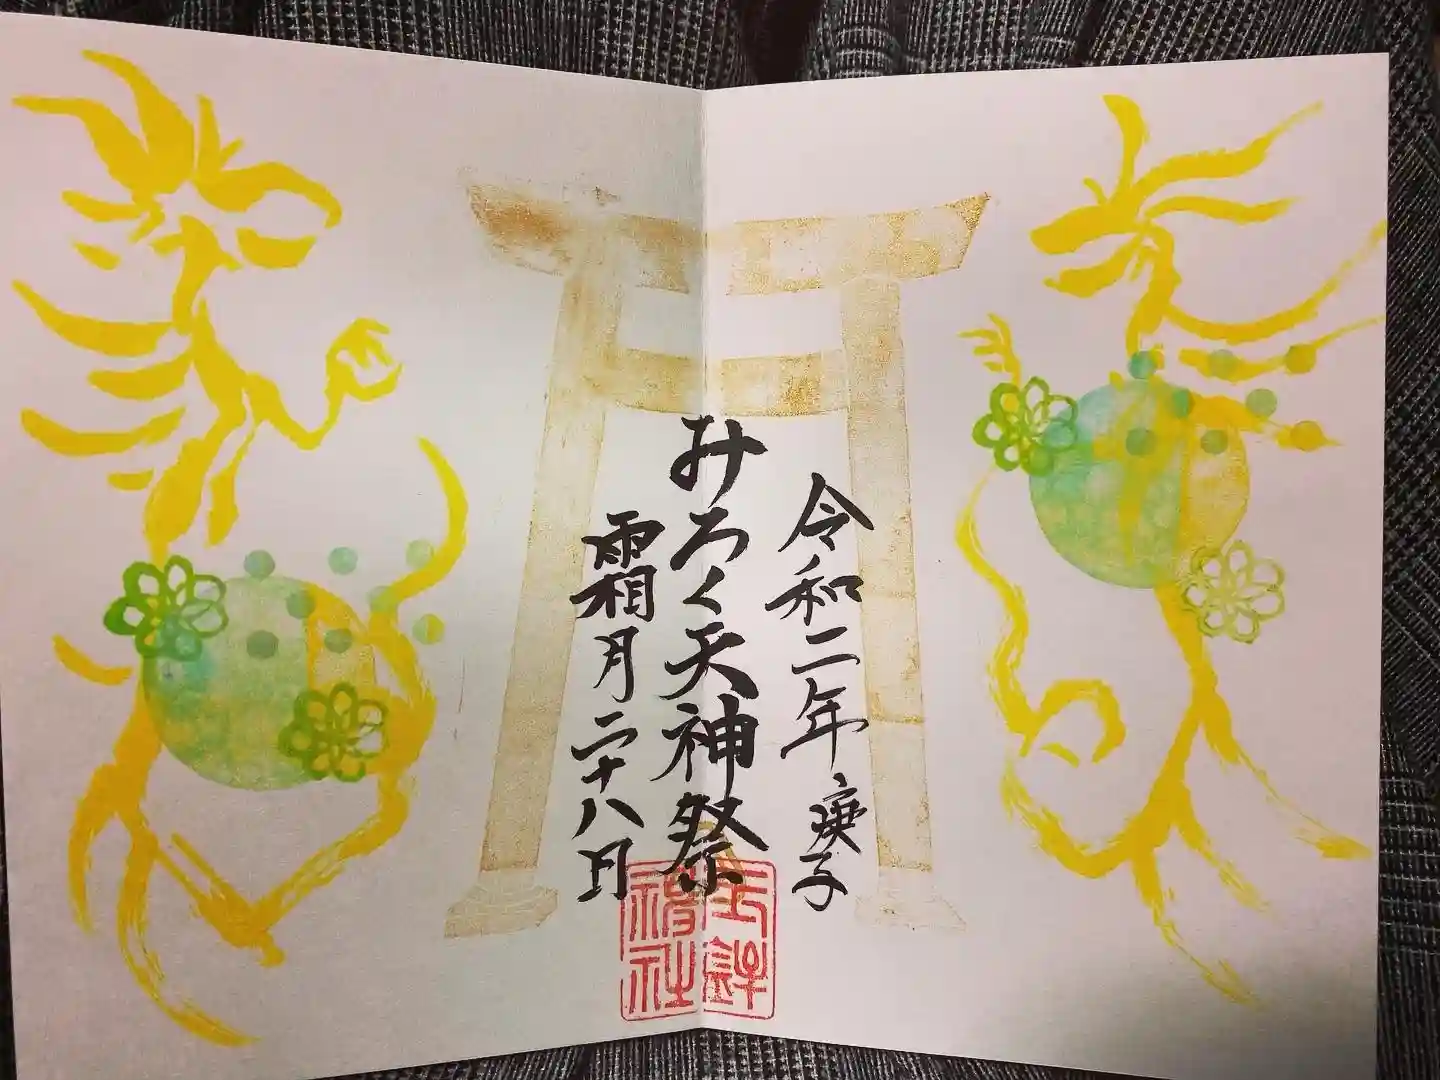 令和二年 庚子
みろく天神祭
霜月二十八日
玉鉾
神社